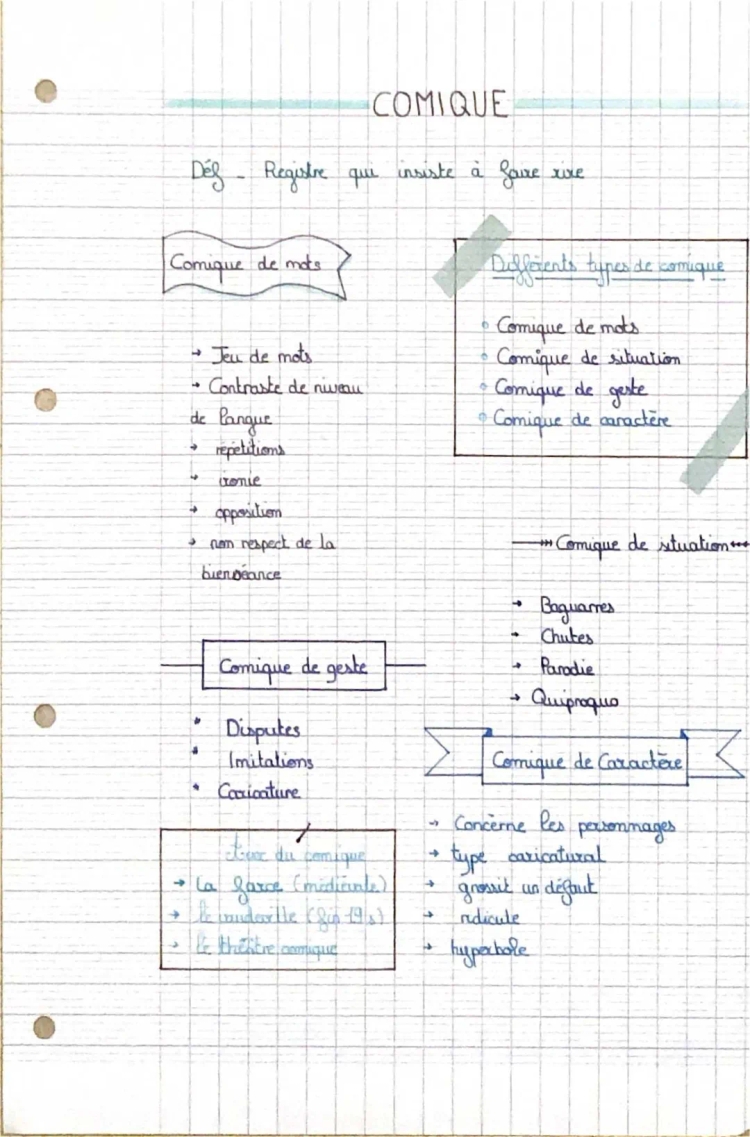 COMIQUE
Déf - Registre qui insiste à faire rire
Comique de mots
→ Jeu de mots
→ Contraste de niveau
de langue
→ répétitions
→ ironie
→ opposition
→ non respect de la
bienséance
Différents types de comique
Comique de mots
Comique de situation
Comique de geste
Comique de caractère
Comique de situation
→ Baguarres
→ Chutes
→ Parodie
→ Quiproquo
Comique de geste
Disputes
Imitations
Caricature
Comique de Caractère
→ Concèrne les personnages
→ type caricatural
→ grossit un défaut
→ ridicule
→ hyperbole
du comique
→ La farce (médiévale)
→ le vaudeville (fin 19s)
→ le théâtre comique